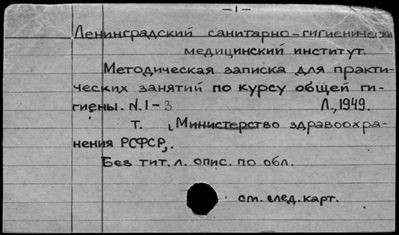 -1-
Ленинградский санитарно-гигиенический
медицинский институт.
Методическая записка для практи-
ческих занятий по курсу общей ги-
гиены. N.1-3 Л., 1949.
т. , Министерство здравоохра-
нения РСФСР,.
Без тит. л. опис. по обл.
см. след. карт.